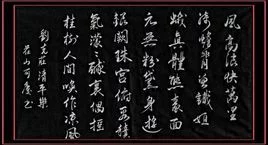 風高浪快萬里
騎蟾背曾識姮
娥真體態素面
元無粉黛身遊
銀闕珠宮俯看積
氣濛濛醉裏偶搖
桂樹人間喚作涼風
劉克莊清平樂